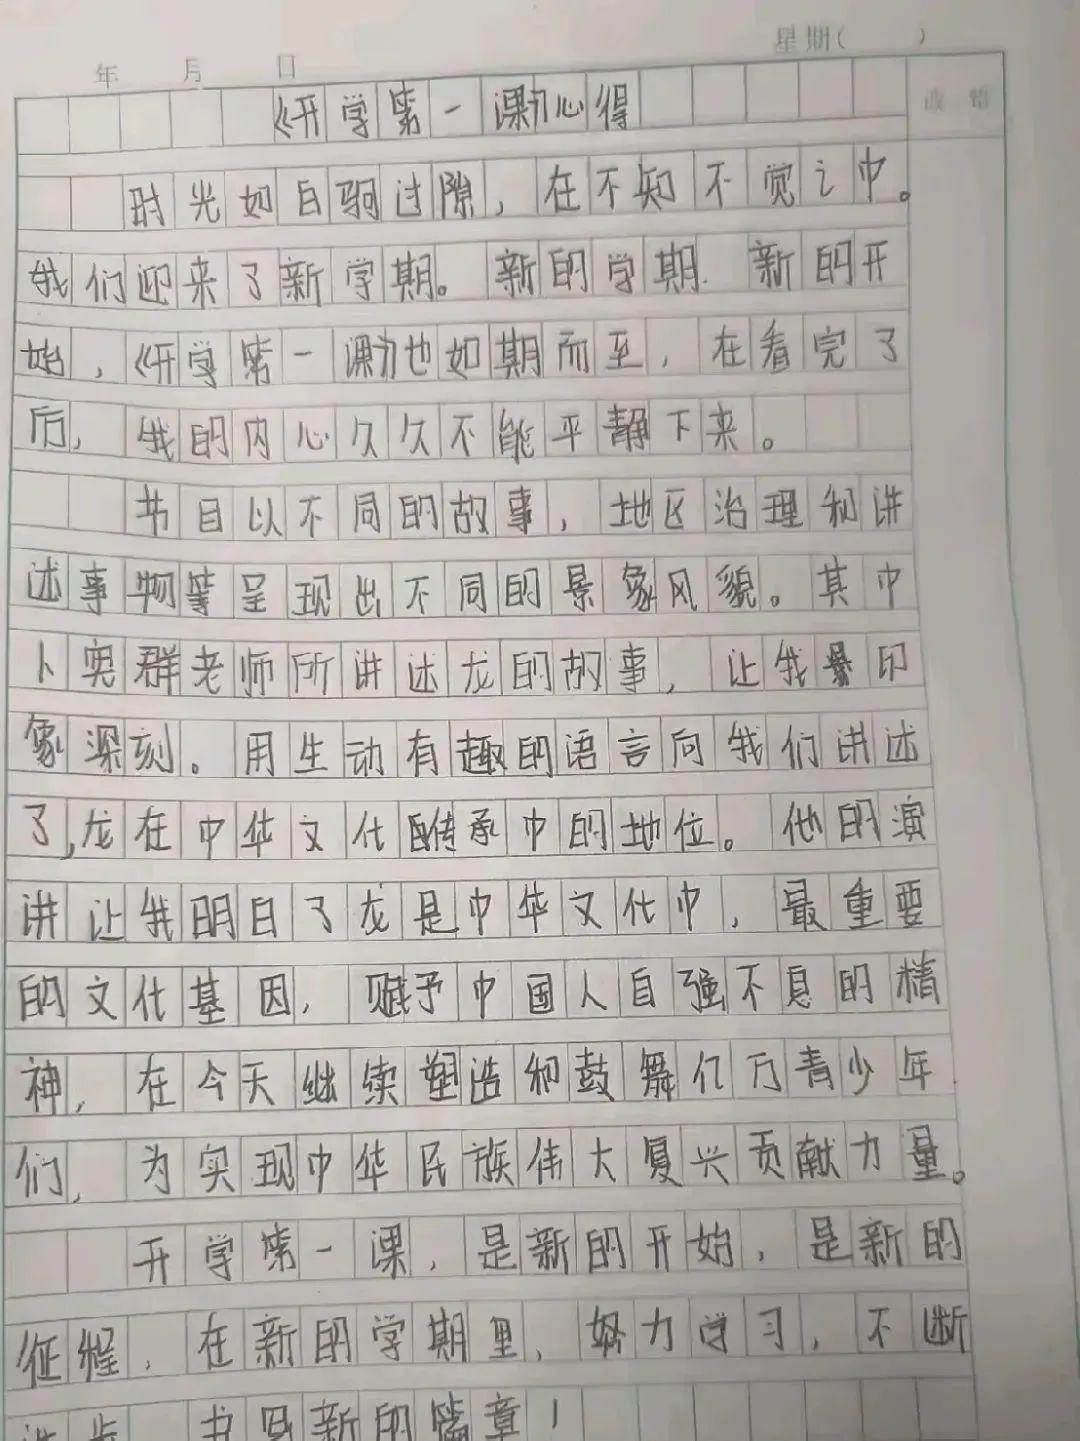 年 月 日 星期( )
改错
《开学第一课》心得
时光如白驹过隙，在不知不觉之中。
我们迎来了新学期。新的学期.新的开
始，《开学第一课》也如期而至，在看完了
后，我的内心久久不能平静下来。
书目以不同的故事，地区治理和讲
述事物等呈现出不同的景象风貌。其中
卜奕群老师所讲述龙的故事，让我最印
象深刻。用生动有趣的语言向我们讲述
了，龙在中华文化传承中的地位。他的演
讲让我明白了龙是中华文化中，最重要
的文化基因，赋予中国人自强不息的精
神，在今天继续塑造和鼓舞亿万青少年
们，为实现中华民族伟大复兴贡献力量。
开学第一课，是新的开始，是新的
征程，在新的学期里，努力学习，不断
进步 书写新的篇章！